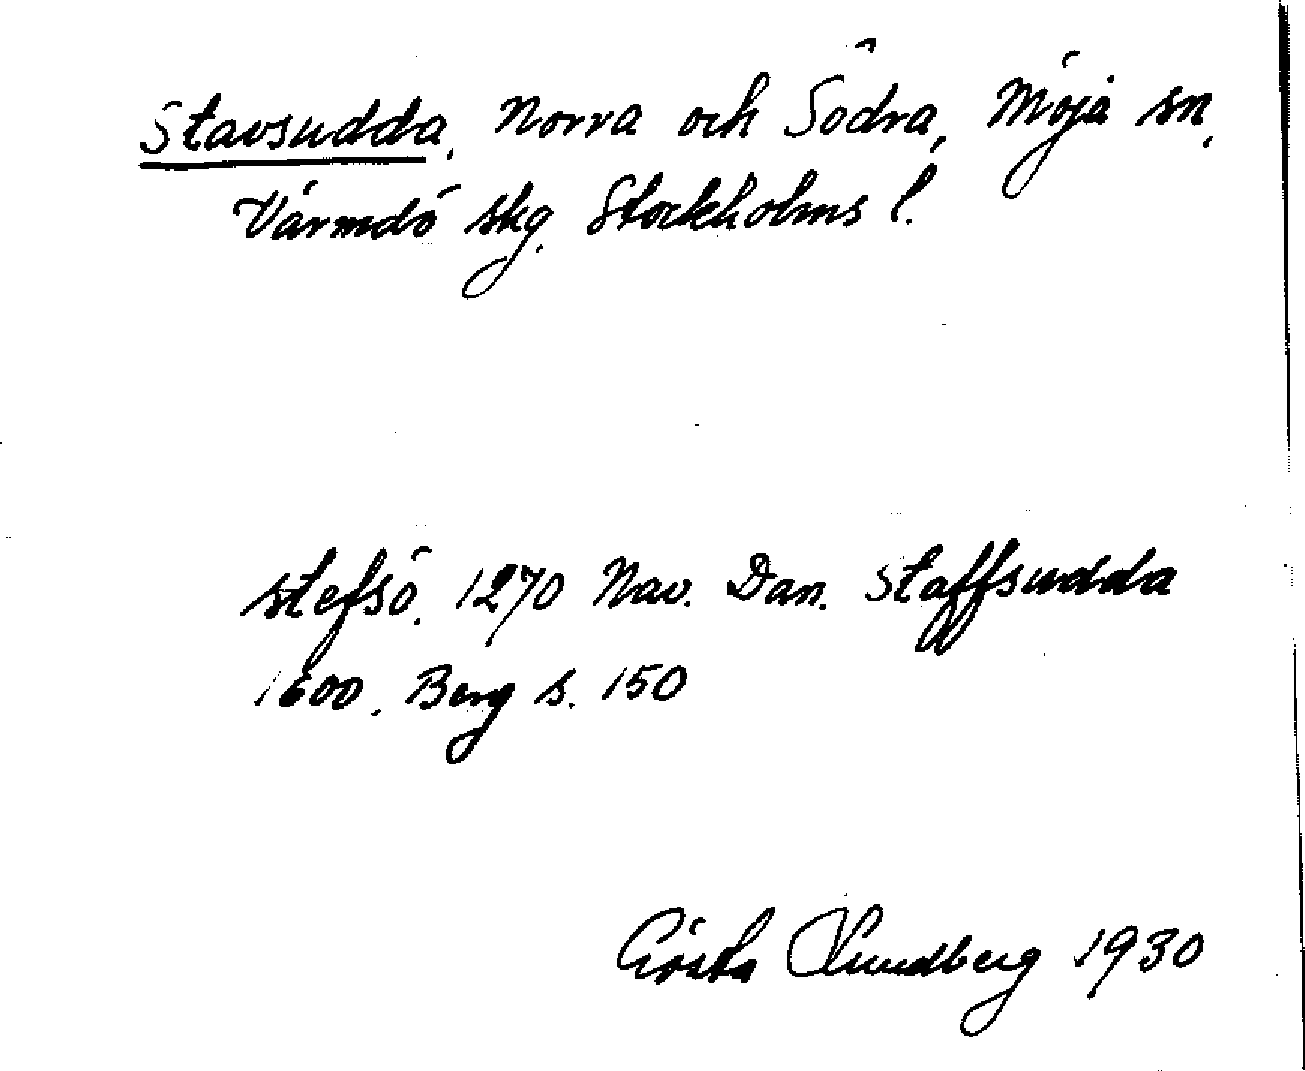 Stavsudda, Norra och Södra, Möja sn,
Värmdö skg. Stockholms l.
stefsö. 1270 Nav. Dan. Staffsudda
1600. Berg s. 150
Gösta Lundberg 1930